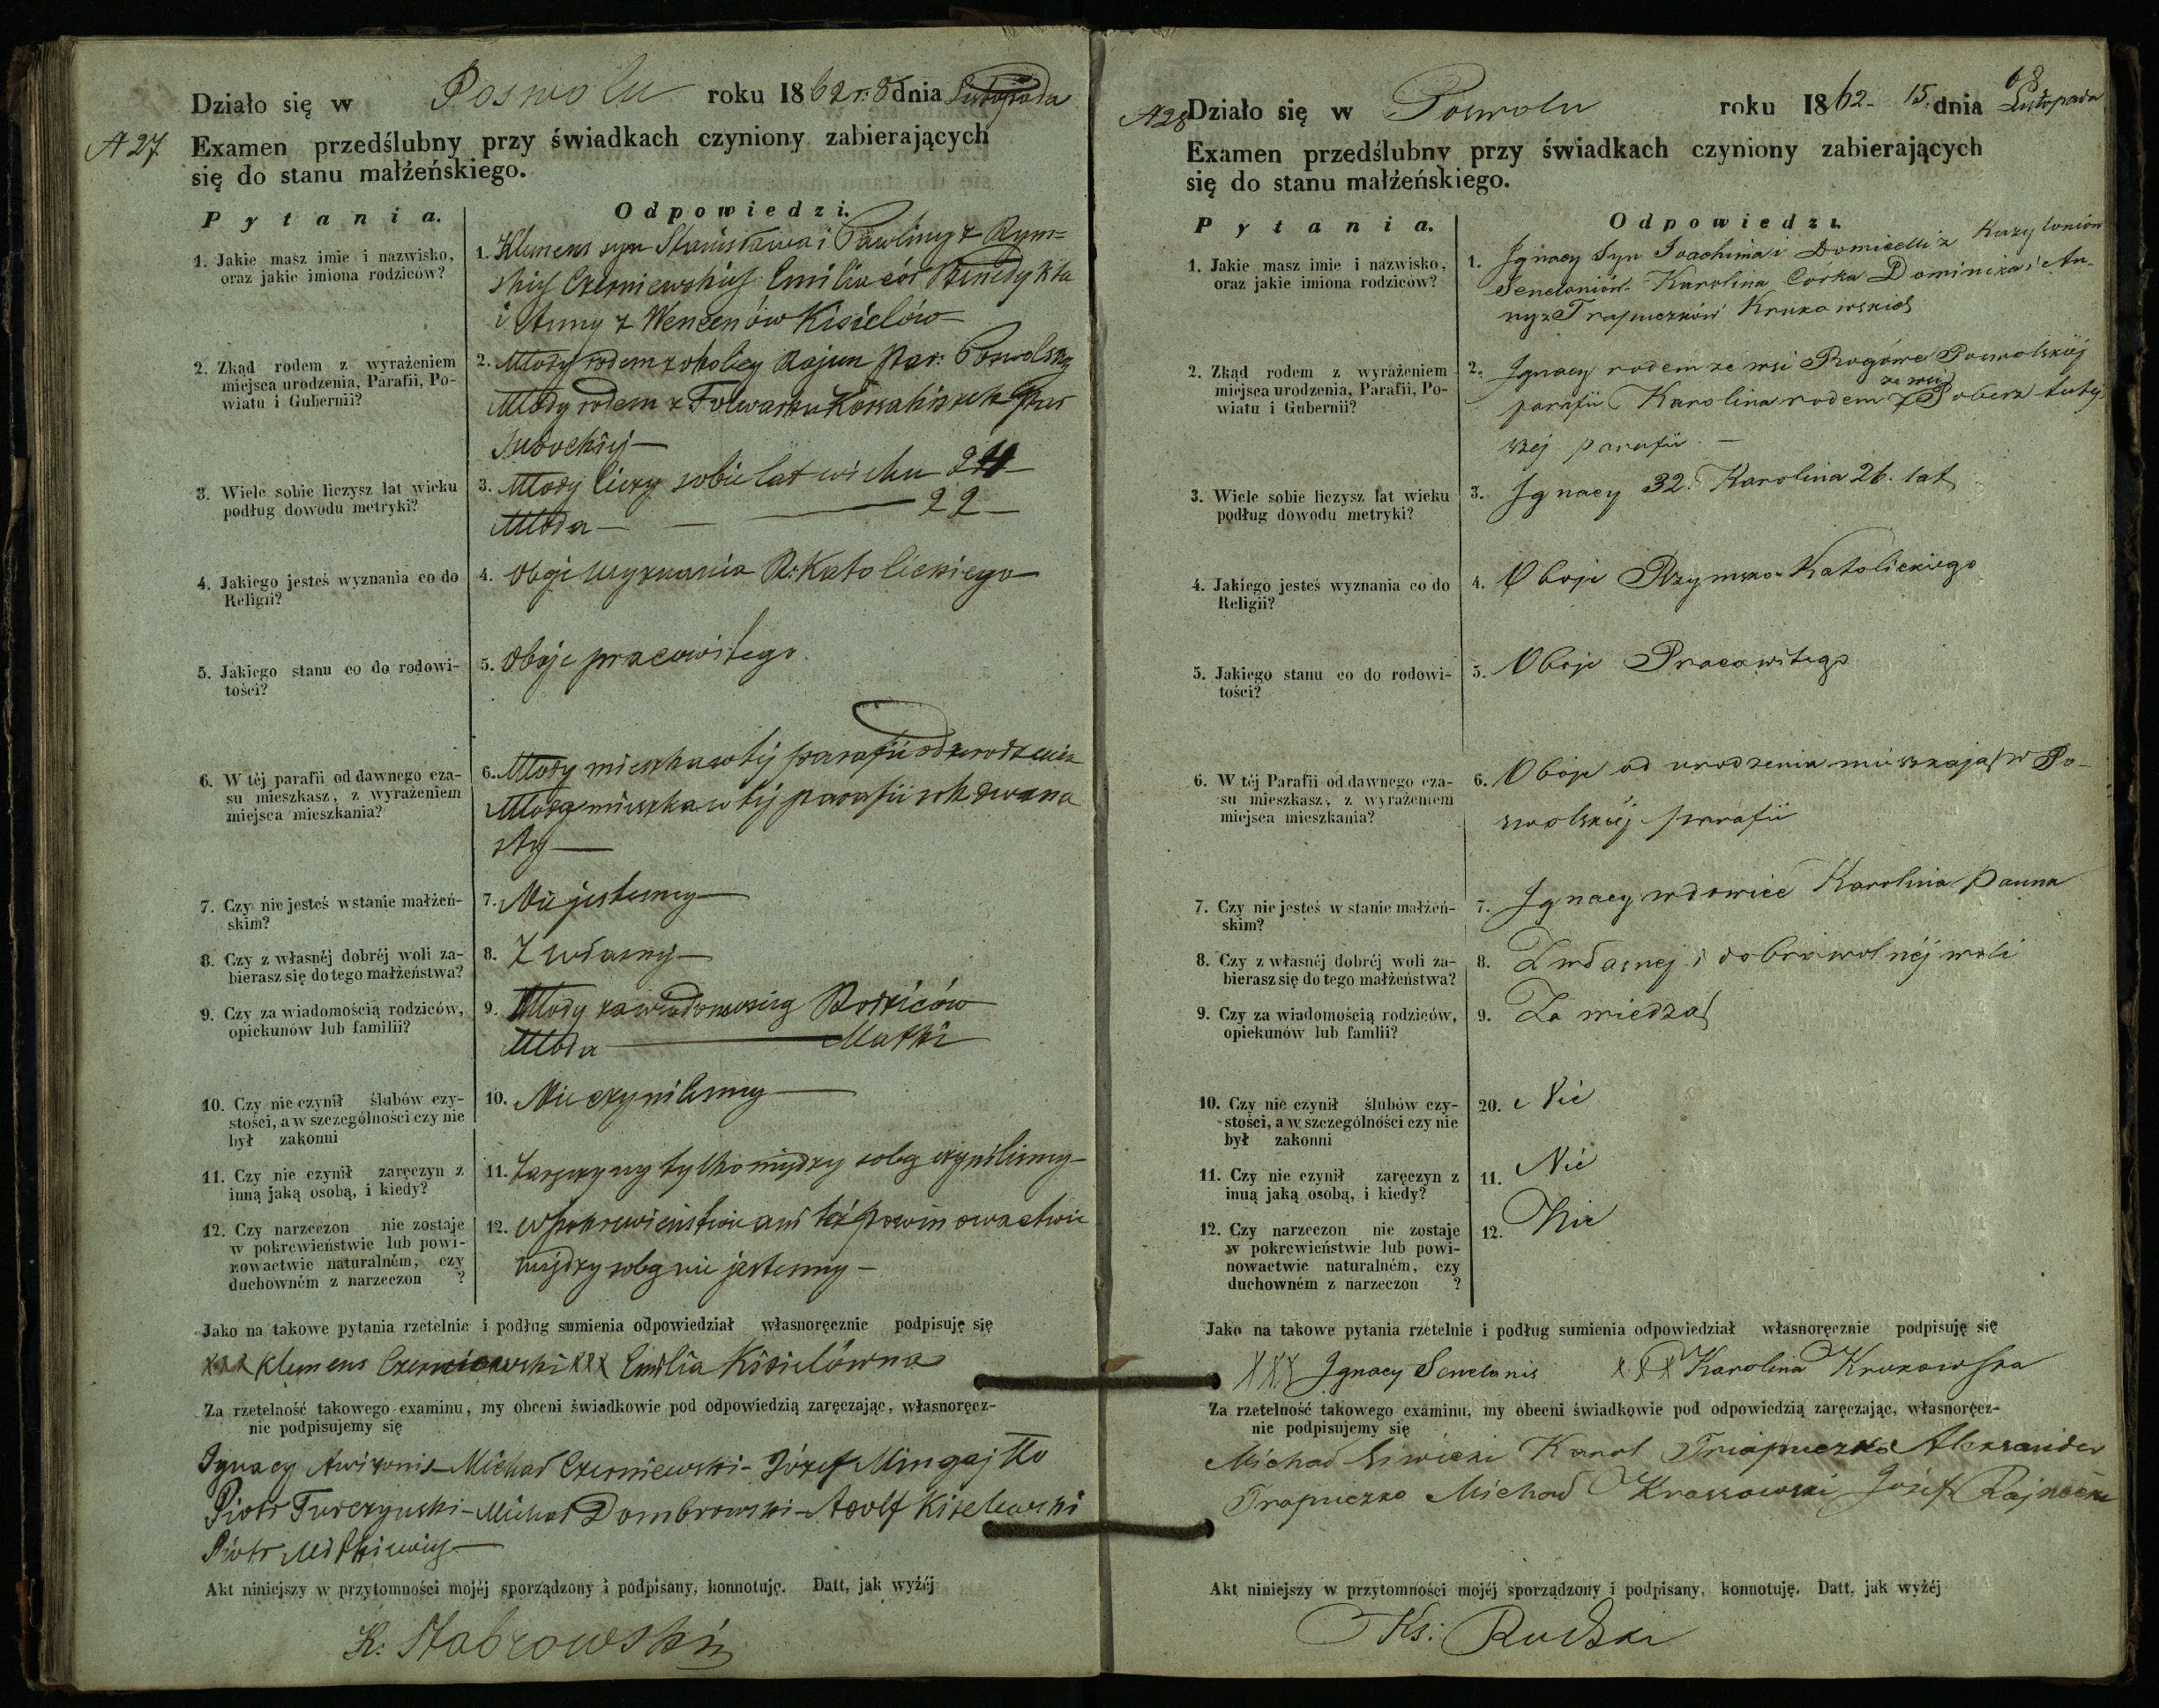 Działo się w Poswolu roku 1862 r. 8 dnia Listopada
A 27
Examen przedślubny przy świadkach czyniony zabierających
się do stanu małżeńskiego.
Pytania.
Odpowiedzi.
1. Jakie masz imie i nazwisko,
oraz jakie imiona rodziców?
1. Klemens syn Stanisława i Pawliny z Rym=
skich Czerniewskich Emilia cór Benedykta
i Anny z Wencenów Kisielów
2. Zkąd rodem z wyrażeniem
miejsca urodzenia, Parafii, Po-
wiatu i Gubernii?
2. Młody rodem z okolicy Rajun Par:
Młody rodem z Folwarku
3. Wiele sobie liczysz lat wieku
podług dowodu metryki?
3. Młody liczy sobie lat wieku 24
Młoda 22
4. Jakiego jesteś wyznania co do
Religii?
4. Oboje wyznania R: Katolickiego
5. Jakiego stanu co do rodowi-
tości?
5. Oboje pracowitego.
6. W téj parafii od dawnego cza-
su mieszkasz, z wyrażeniem
miejsca mieszkania?
6. Młody mieszka w téj parafii od urodzenia
Młoda mieszka w téj parafii
7. Czy nie jesteś w stanie małżeń-
skim?
7. Nie jestesmy
8. Czy z własnéj dobréj woli za-
bierasz się do tego małżeństwa?
8. Z własnéj
9. Czy za wiadomością rodziców,
opiekunów lub familii?
9. Młody za wiadomością Rodziców
Młoda Matki
10. Czy nie czynił ślubów czy-
stości, a w szczególności czy nie
był zakonni
10. Nie czynilismy
11. Czy nie czynił zaręczyn z
inną jaką osobą, i kiedy?
11. Zaręczyny tylko między sobą czynilismy
12. Czy narzeczon nie zostaje
w pokrewieństwie lub powi-
nowactwie naturalném, czy
duchowném z narzeczon ?
12. W pokrewieństwie ani też powinowactwie
między sobą nie jestesmy
Jako na takowe pytania rzetelnie i podług sumienia odpowiedział własnoręcznie podpisuję się
xxx Klemens Czerniewski xxx Emilia Kisielówna
Za rzetelność takowego examinu, my obecni świadkowie pod odpowiedzią zaręczając, własnoręcz-
nie podpisujemy się
Ignacy Awizonis - Michał Czerniewski - Józef Mingajłło
Piotr Turczynski - Michał Dombrowski - Adolf Kiselewski
Piotr Mitkiewicz
Akt niniejszy w przytomności mojéj sporządzony i podpisany, konnotuję. Datt, jak wyżéj
K: Stabrowski
A 28
Działo się w Poswolu roku 1862 - 15. dnia 08 Listopada
Examen przedślubny przy świadkach czyniony zabierających
się do stanu małżeńskiego.
Pytania.
Odpowiedzi.
1. Jakie masz imie i nazwisko,
oraz jakie imiona rodziców?
1. Ignacy Syn Joachima i Domicelli z
Karolina Corka Dominika i An-
ny z Trapuczków Krukowskich
2. Zkąd rodem z wyrażeniem
miejsca urodzenia, Parafii, Po-
wiatu i Gubernii?
2. Ignacy rodem ze wsi Poswolskiéj
parafii Karolina rodem ze wsi tutej
szej parafii. —
3. Wiele sobie liczysz lat wieku
podług dowodu metryki?
3. Ignacy 32. Karolina 26. lat
4. Jakiego jesteś wyznania co do
Religii?
4. Oboje Rzymsko-Katolickiego
5. Jakiego stanu co do rodowi-
tości?
5. Oboje Pracowitego
6. W téj Parafii od dawnego cza-
su mieszkasz, z wyrażeniem
miejsca mieszkania?
6. Oboje od urodzenia mieszkają w Po-
swolskiéj parafii
7. Czy nie jesteś w stanie małżeń-
skim?
7. Ignacy wdowiec Karolina panna
8. Czy z własnéj dobréj woli za-
bierasz się do tego małżeństwa?
8. Z własnej i dobrowolnéj woli
9. Czy za wiadomością rodziców,
opiekunów lub famlii?
9. Za wiedzą
10. Czy nie czynił ślubów czy-
stości, a w szczególności czy nie
był zakonni
20. Nie
11. Czy nie czynił zaręczyn z
inną jaką osobą, i kiedy?
11. Nie
12. Czy narzeczon nie zostaje
w pokrewieństwie lub powi-
nowactwie naturalném, czy
duchowném z narzeczon ?
12. Nie
Jako na takowe pytania rzetelnie i podług sumienia odpowiedział własnoręcznie podpisuję się
XXX Ignacy XXX Karolina Krukowska
Za rzetelność takowego examinu, my obecni świadkowie pod odpowiedzią zaręczając, własnoręcz-
nie podpisujemy się
Michał Karol Trapuczko Alexander
Trapuczko Michał Krassowski Józef
Akt niniejszy w przytomności mojéj sporządzony i podpisany, konnotuję. Datt, jak wyżéj
Ks: Rudzki